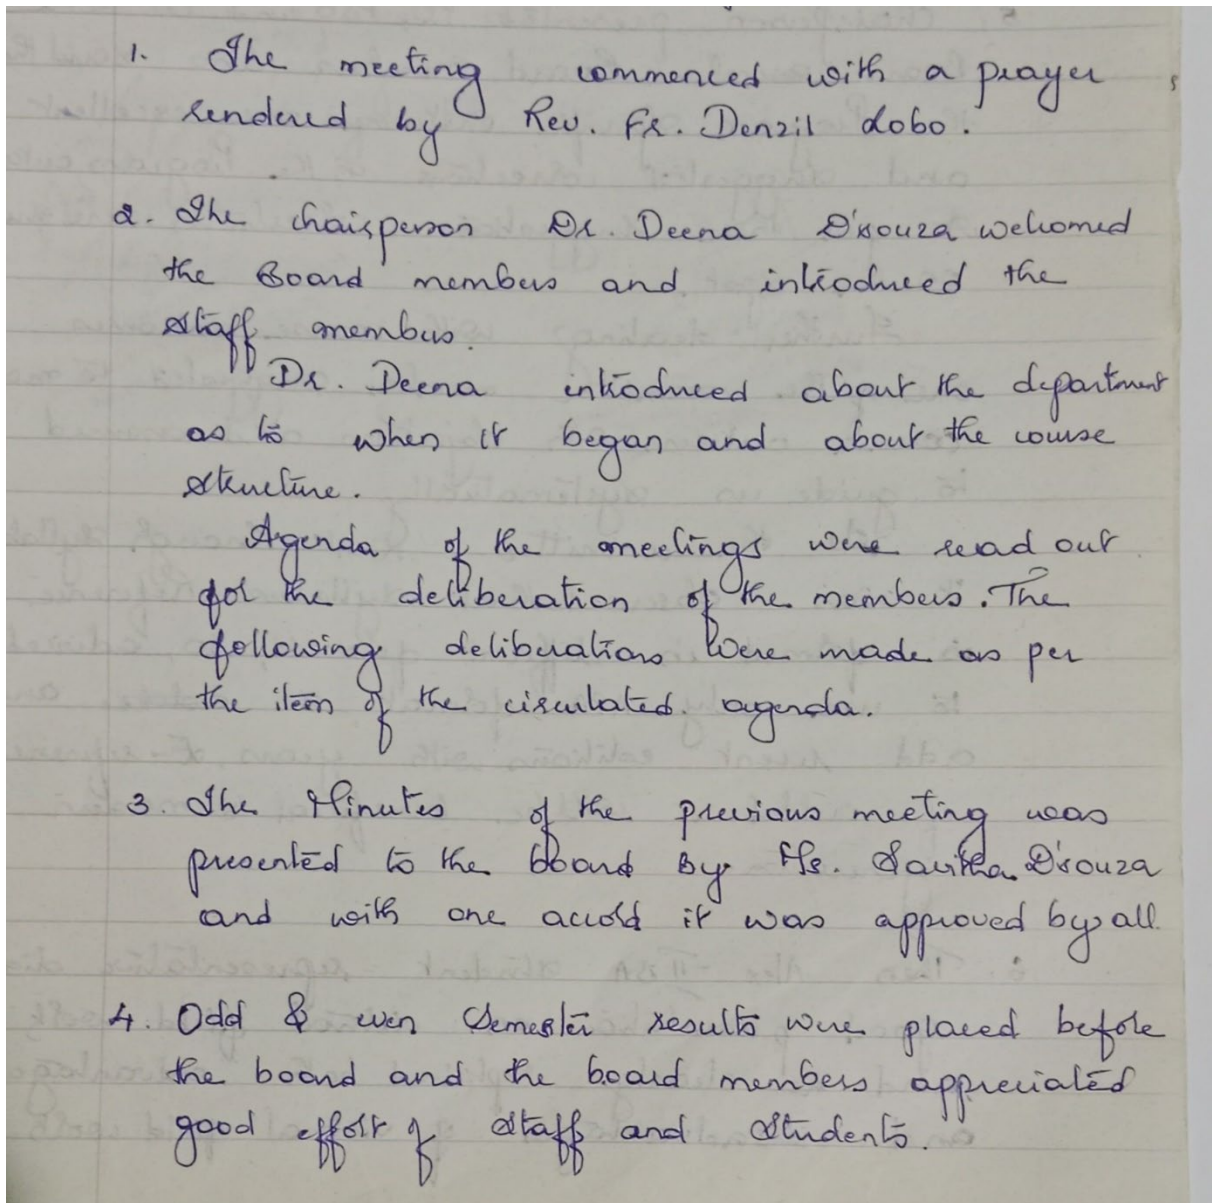 1. The meeting commenced with a prayer
rendered by Rev. Fr. Denzil Lobo.
2. The chairperson Dr. Deena D'souza welcomed
the Board members and introduced the
staff members.
Dr. Deena introduced about the department
as to when it began and about the course
structure.
Agenda of the meetings were read out
for the deliberation of the members. The
following deliberations were made as per
the item of the circulated agenda.
3. The Minutes of the previous meeting was
presented to the board By Ms. Savitha D'souza
and with one accord it was approved by all.
4. Odd & even Semester results were placed before
the board and the board members appreciated
good effort of staff and students.